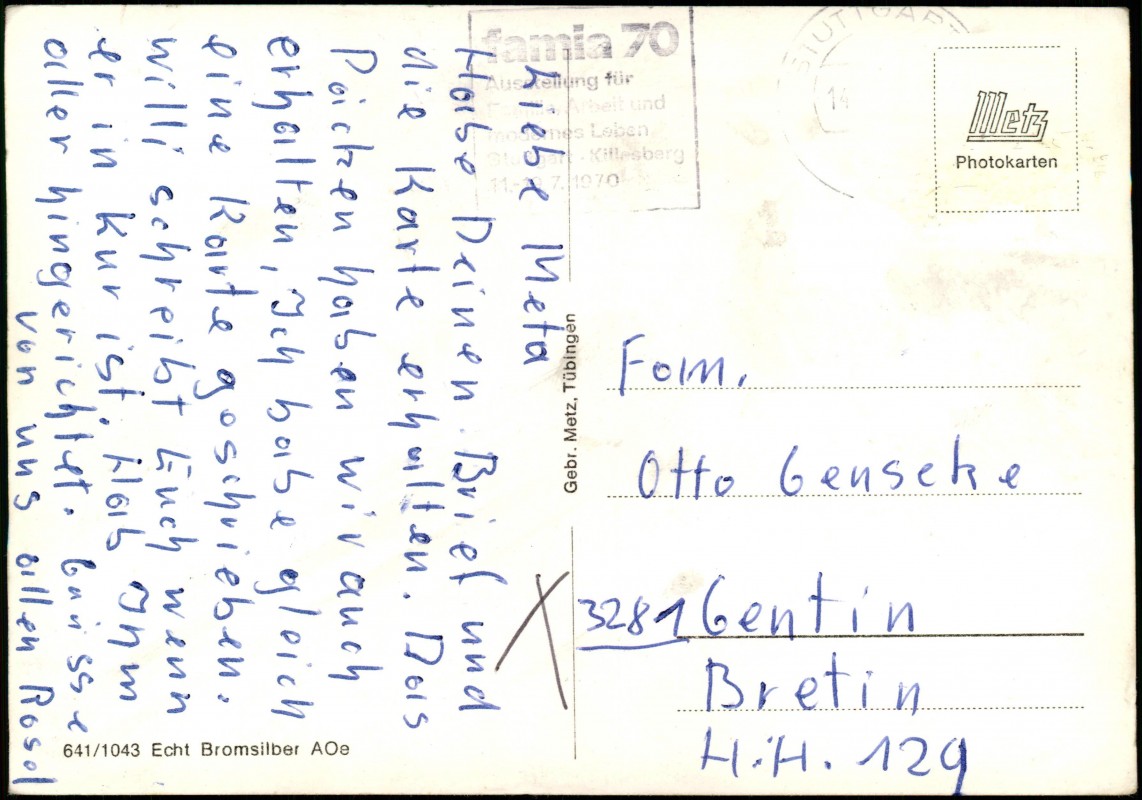 famia 70
Ausstellung für
Familie, Arbeit und
modernes Leben
Stuttgart - Killesberg
11.-19.7.1970
STUTTGART
14
Metz
Photokarten
Liebe Meta
Habe Deinen Brief und
die Karte erhalten. Das
Päcken haben wir auch
erhalten, Ich habe gleich
eine Karte geschrieben.
Willi schreibt Euch wenn
er in Kur ist. Hab Ihm
aller hingerichtet. Grüsse
von uns allen Rosel
Gebr. Metz, Tübingen
Fam.
Otto Genseke
3281 Gentin
Bretin
H.H. 129
641/1043 Echt Bromsilber AOe